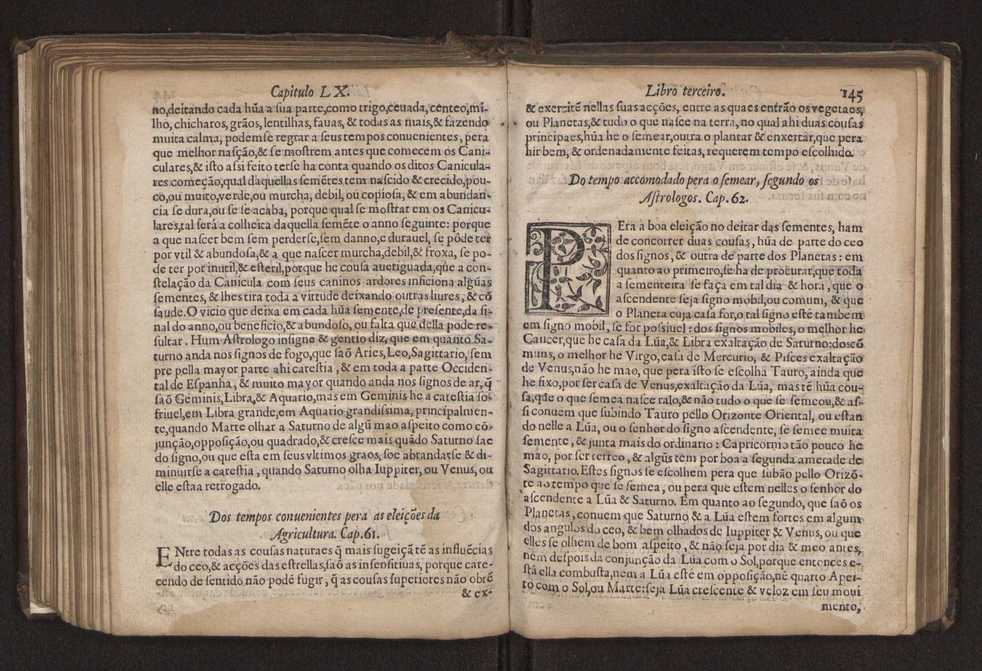 Capitulo LX.
no,deitando cada hũa a sua parte,como trigo,ceuada,centeo,mi-
lho, chicharos, grãos, lentilhas, fauas, & todas as mais,& fazendo
muita calma, podemse regrar a seus tempos conuenientes, pera
que melhor nasção,& se mostrem antes que comecem os Cani-
culares,& isto assi feito terse ha conta quando os ditos Canicula-
res começão,qual daquellas semẽtes tem nascido & crecido,pou-
co,ou muito,verde,ou murcha, debil, ou copiosa, & em abundan-
cia se dura,ou se se acaba, porque qual se mostrar em os Canicu-
lares,tal será a colheita daquella semẽte o anno seguinte: porque
a que nascer bem sem perderse,sem danno,& durauel, se põde ter
por vtil & abundosa,& a que nascer murcha,debil,& froxa, se po-
de ter por inutil,& esteril,porque he cousa aueriguada,que a con-
stelação da Canicula com seus caninos ardores inficiona algũas
sementes, & lhes tira toda a virtude deixando outras liures, & cõ
saude.O vicio que deixa em cada hũa semente,de presente,da si-
nal do anno,ou beneficio,& abundoso, ou falta que della pode re-
sultar. Hum Astrologo insigne & gentio diz, que em quanto Sa-
turno anda nos signos de fogo,que saõ Aries, Leo,Sagittario, sem
pre pella mayor parte ahi carestia , & em toda a parte Occiden-
tal de Espanha, & muito mayor quando anda nos signos de ar, q̃
saõ Geminis, Libra,& Aquario,mas em Geminis he a carestia so-
friuel,em Libra grande,em Aquario grandissima, principalmen-
te,quando Marte olhar a Saturno de algũ mao aspeito como cõ-
junção,opposição,ou quadrado,& cresce mais quãdo Saturno sae
do signo,ou que esta em seus vltimos graos, soe abrandarse & di-
minuirse a carestia , quando Saturno olha Iuppiter, ou Venus, ou
elle estaa retrogado.
Dos tempos conuenientes pera as eleições da
Agricultura. Cap.61.
ENtre todas as cousas naturaes q̃ mais sugeiçã tẽ as influẽcias
do ceo,& acções das estrellas,saõ as insensitiuas, porque care-
cendo de sentido não podẽ fugir, q̃ as cousas superiores não obrẽ
& ex-
Libro terceiro. 145
& exercitẽ nellas suas acções, entre as quaes entrão os vegetaes,
ou Planetas,& tudo o que nasce na terra,no qual ahi duas cousas
principaes,hũa he o semear,outra o plantar & enxertar,que pera
hir bem, & ordenadamente feitas, requerem tempo escolhido.
Do tempo accomodado pera o semear, segundo os
Astrologos. Cap. 62.
PEra a boa eleição no deitar das sementes, ham
de concorrer duas cousas, hũa de parte do ceo
dos signos, & outra de parte dos Planetas: em
quanto ao primeiro,se ha de procurar,que toda
a sementeira se faça em tal dia & hora , que o
ascendente seja signo mobil,ou comum, & que
o Planeta cuja casa for,o tal signo estê tambem
em signo mobil, se for possiuel : dos signos mobiles, o melhor he
Cancer,que he casa da Lũa,& Libra exaltação de Saturno:dos cõ
muns, o melhor he Virgo,casa de Mercurio, & Pisces exaltação
de Venus,não he mao, que pera isto se escolha Tauro, ainda que
he fixo,por ser casa de Venus,exaltação da Lũa, mas tẽ hũa cou-
sa,que o que semea nasce ralo,& não tudo o que se semeou,& as-
si conuem que subindo Tauro pello Orizonte Oriental, ou estan
do nelle a Lũa, ou o senhor do signo ascendente, se semee muita
semente , & junta mais do ordinario : Capricornio tão pouco he
mao, por ser terreo , & algũs tem por boa a segunda ametade de
Sagittario.Estes signos se escolhem pera que subão pello Orizõ-
te ao tempo que se semea , ou pera que estem nelles o senhor do
ascendente a Lũa & Saturno. Em quanto ao segundo, que saõ os
Planetas, conuem que Saturno & a Lũa estem fortes em algum
dos angulos do ceo, & bem olhados de Iuppiter & Venus, ou que
elles se olhem de bom aspeito , & não seja por dia & meo antes,
nem despois da conjunção da Lũa com o Sol,porque entonces e-
stà ella combusta,nem a Lũa estê em opposição,nẽ quarto Aspei-
to com o Sol,ou Marte:seja Lũa crescente & veloz em seu moui
mento,